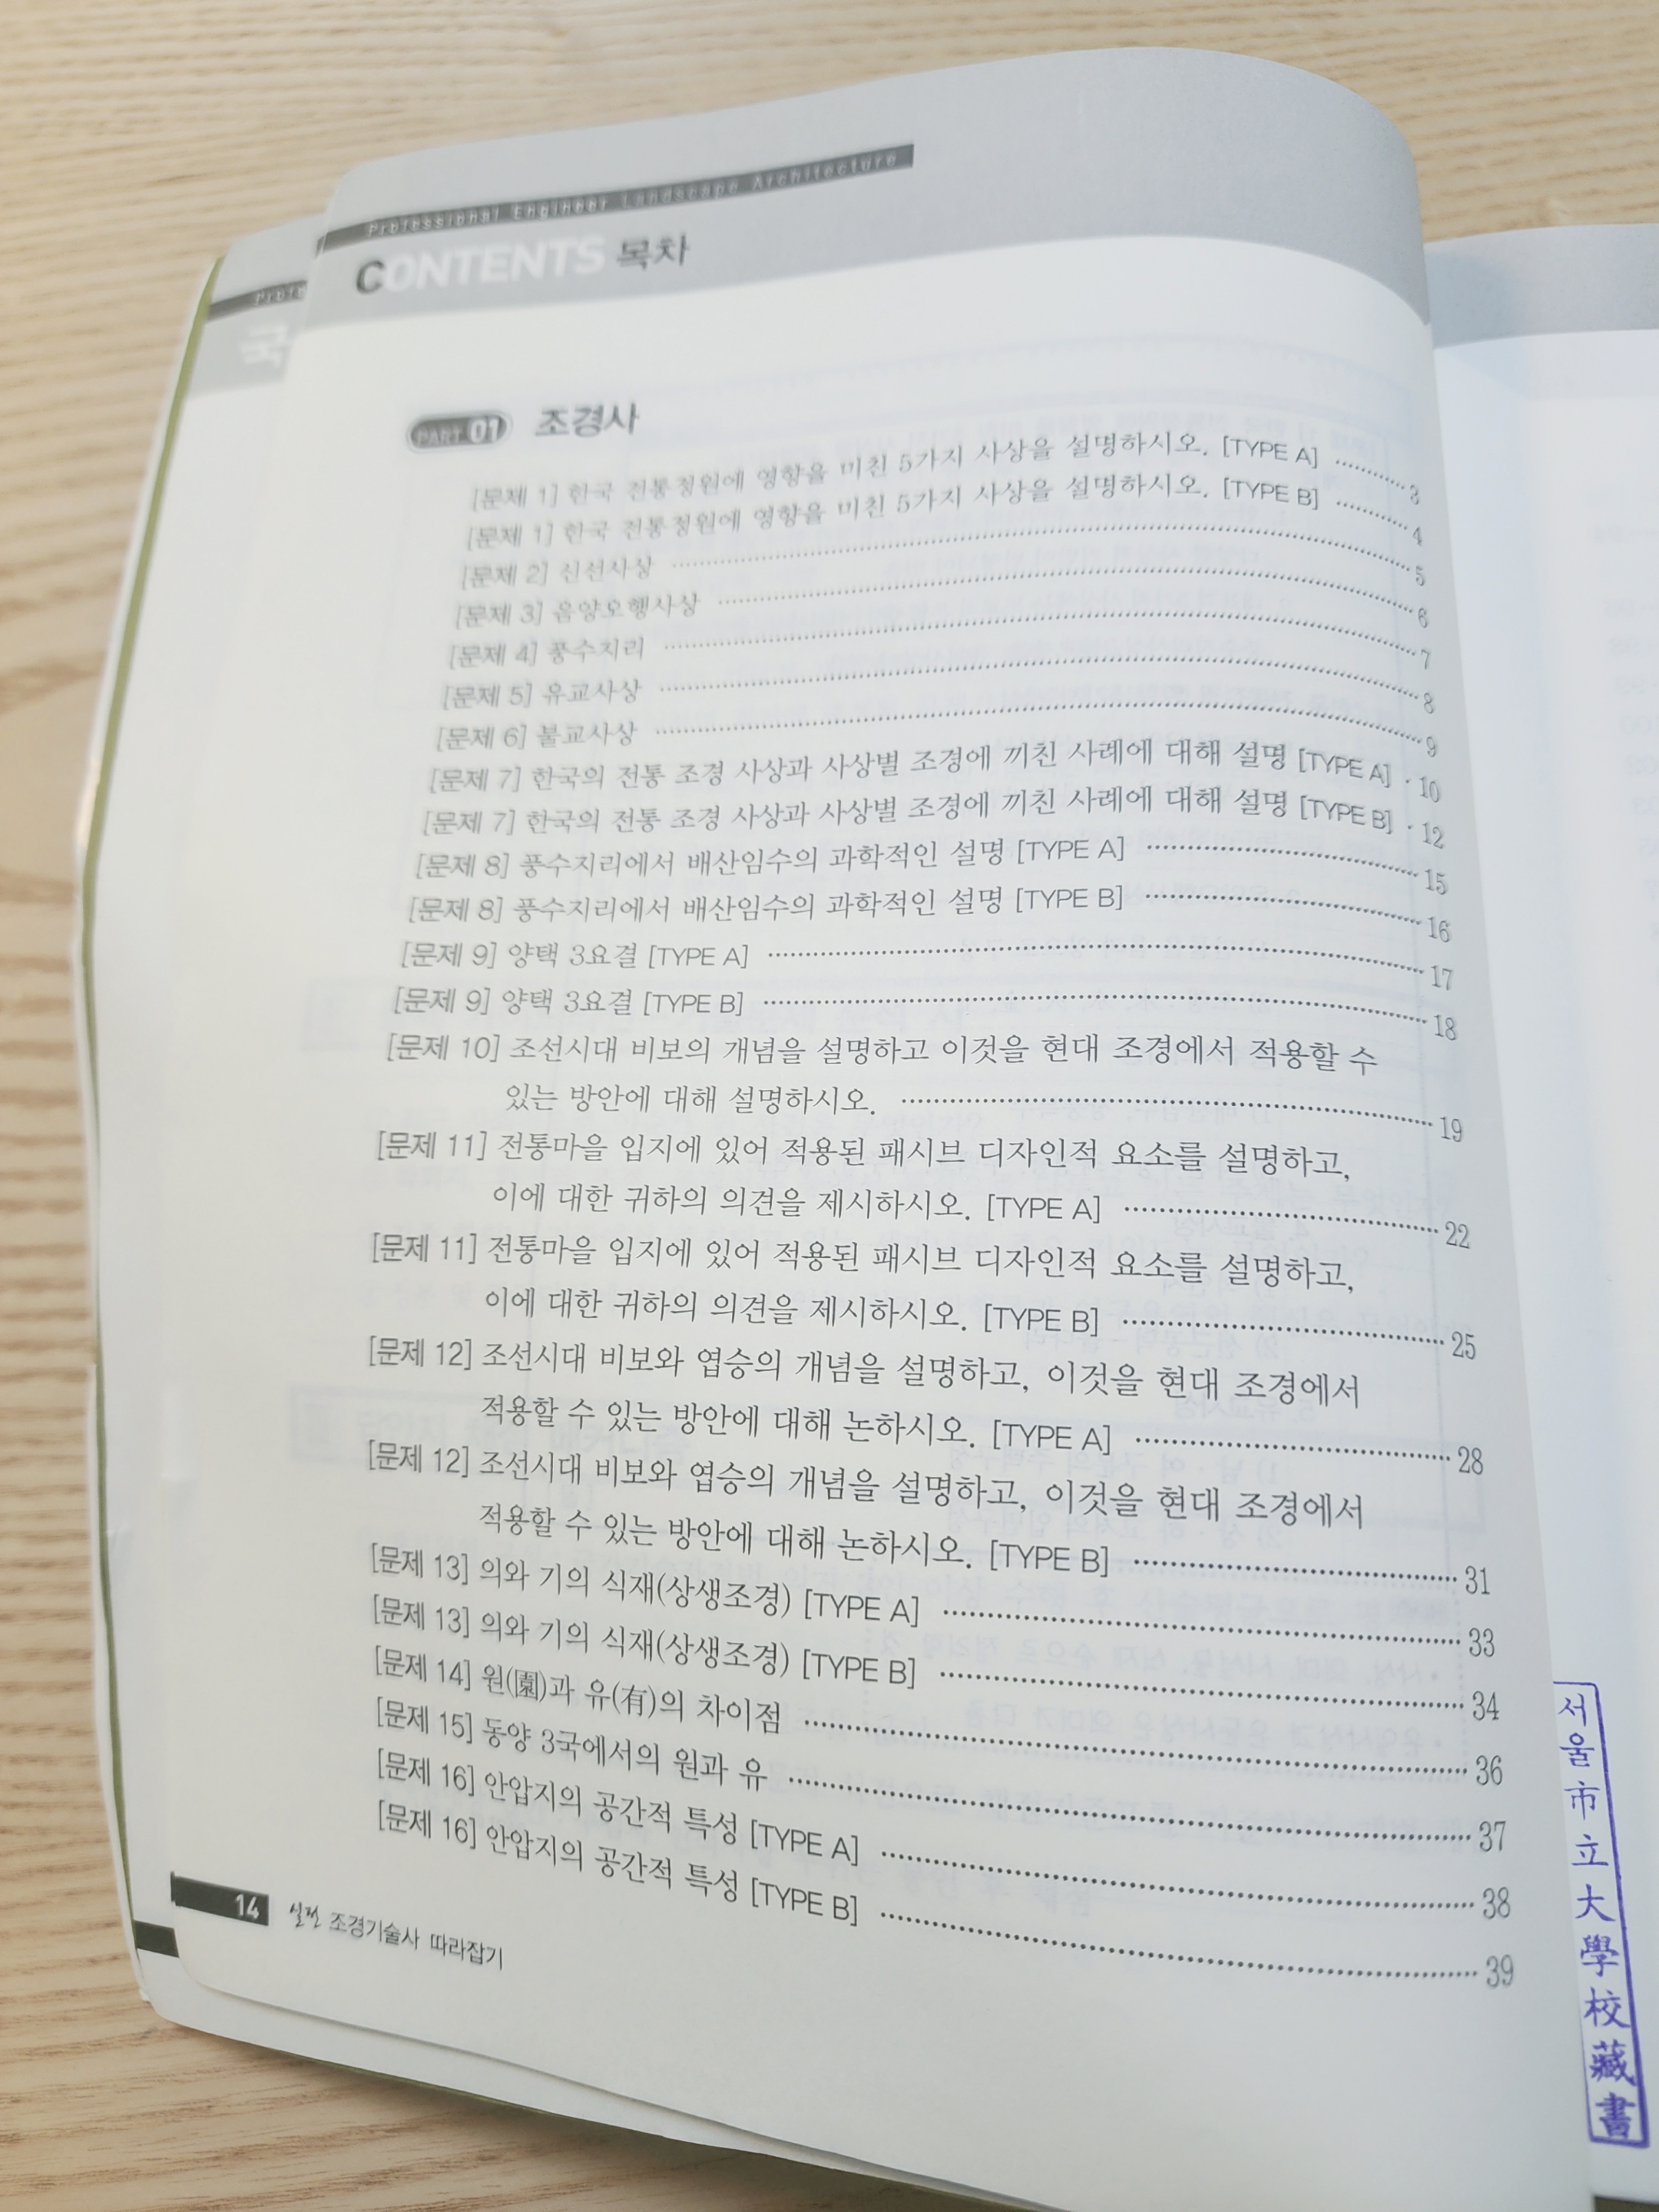 Professional Engineer Landscape Architecture
CONTENTS 목차
PART 01 조경사
[문제 1] 한국 전통정원에 영향을 미친 5가지 사상을 설명하시오. [TYPE A] 3
[문제 1] 한국 전통정원에 영향을 미친 5가지 사상을 설명하시오. [TYPE B] 4
[문제 2] 신선사상 5
[문제 3] 음양오행사상 6
[문제 4] 풍수지리 7
[문제 5] 유교사상 8
[문제 6] 불교사상 9
[문제 7] 한국의 전통 조경 사상과 사상별 조경에 끼친 사례에 대해 설명 [TYPE A] 10
[문제 7] 한국의 전통 조경 사상과 사상별 조경에 끼친 사례에 대해 설명 [TYPE B] 12
[문제 8] 풍수지리에서 배산임수의 과학적인 설명 [TYPE A] 15
[문제 8] 풍수지리에서 배산임수의 과학적인 설명 [TYPE B] 16
[문제 9] 양택 3요결 [TYPE A] 17
[문제 9] 양택 3요결 [TYPE B] 18
[문제 10] 조선시대 비보의 개념을 설명하고 이것을 현대 조경에서 적용할 수
있는 방안에 대해 설명하시오. 19
[문제 11] 전통마을 입지에 있어 적용된 패시브 디자인적 요소를 설명하고,
이에 대한 귀하의 의견을 제시하시오. [TYPE A] 22
[문제 11] 전통마을 입지에 있어 적용된 패시브 디자인적 요소를 설명하고,
이에 대한 귀하의 의견을 제시하시오. [TYPE B] 25
[문제 12] 조선시대 비보와 엽승의 개념을 설명하고, 이것을 현대 조경에서
적용할 수 있는 방안에 대해 논하시오. [TYPE A] 28
[문제 12] 조선시대 비보와 엽승의 개념을 설명하고, 이것을 현대 조경에서
적용할 수 있는 방안에 대해 논하시오. [TYPE B] 31
[문제 13] 의와 기의 식재(상생조경) [TYPE A] 33
[문제 13] 의와 기의 식재(상생조경) [TYPE B] 34
[문제 14] 원(園)과 유(有)의 차이점 36
[문제 15] 동양 3국에서의 원과 유 37
[문제 16] 안압지의 공간적 특성 [TYPE A] 38
[문제 16] 안압지의 공간적 특성 [TYPE B] 39
14 실전 조경기술사 따라잡기
서울市立大學校藏書